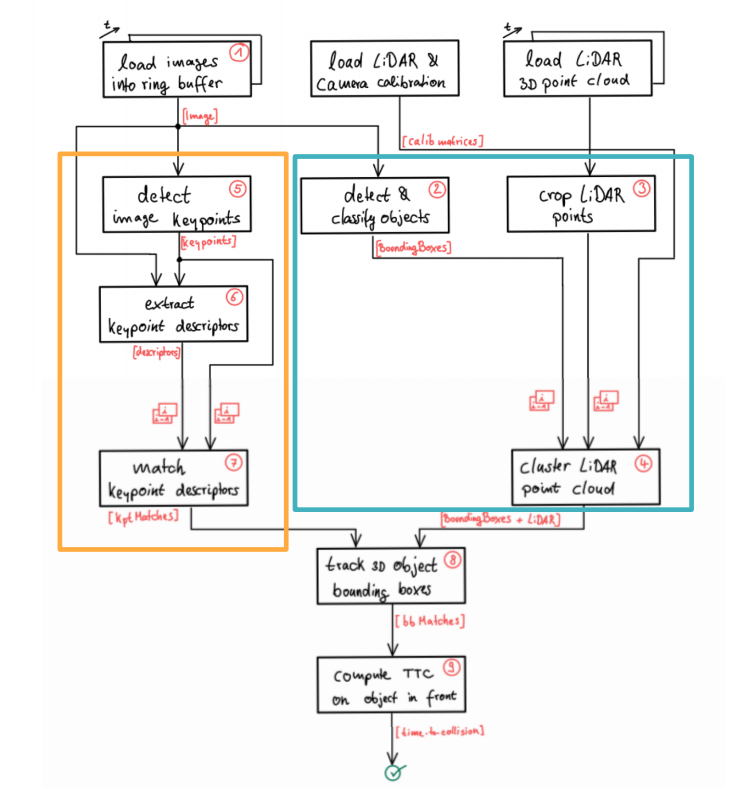 t
t
load images
into ring buffer
1
load LiDAR &
Camera calibration
load LiDAR
3D point cloud
[Image]
[calib matrices]
detect
image keypoints
5
detect &
classify objects
2
crop LiDAR
points
3
[keypoints]
[BoundingBoxes]
extract
keypoint descriptors
6
[descriptors]
i
i-1
i
i-1
i
i-1
i
i-1
match
keypoint descriptors
7
cluster LiDAR
point cloud
4
[Kpt Matches]
[BoundingBoxes + LiDAR]
track 3D object
bounding boxes
8
[bb Matches]
compute TTC
on object in front
9
[time-to-collision]